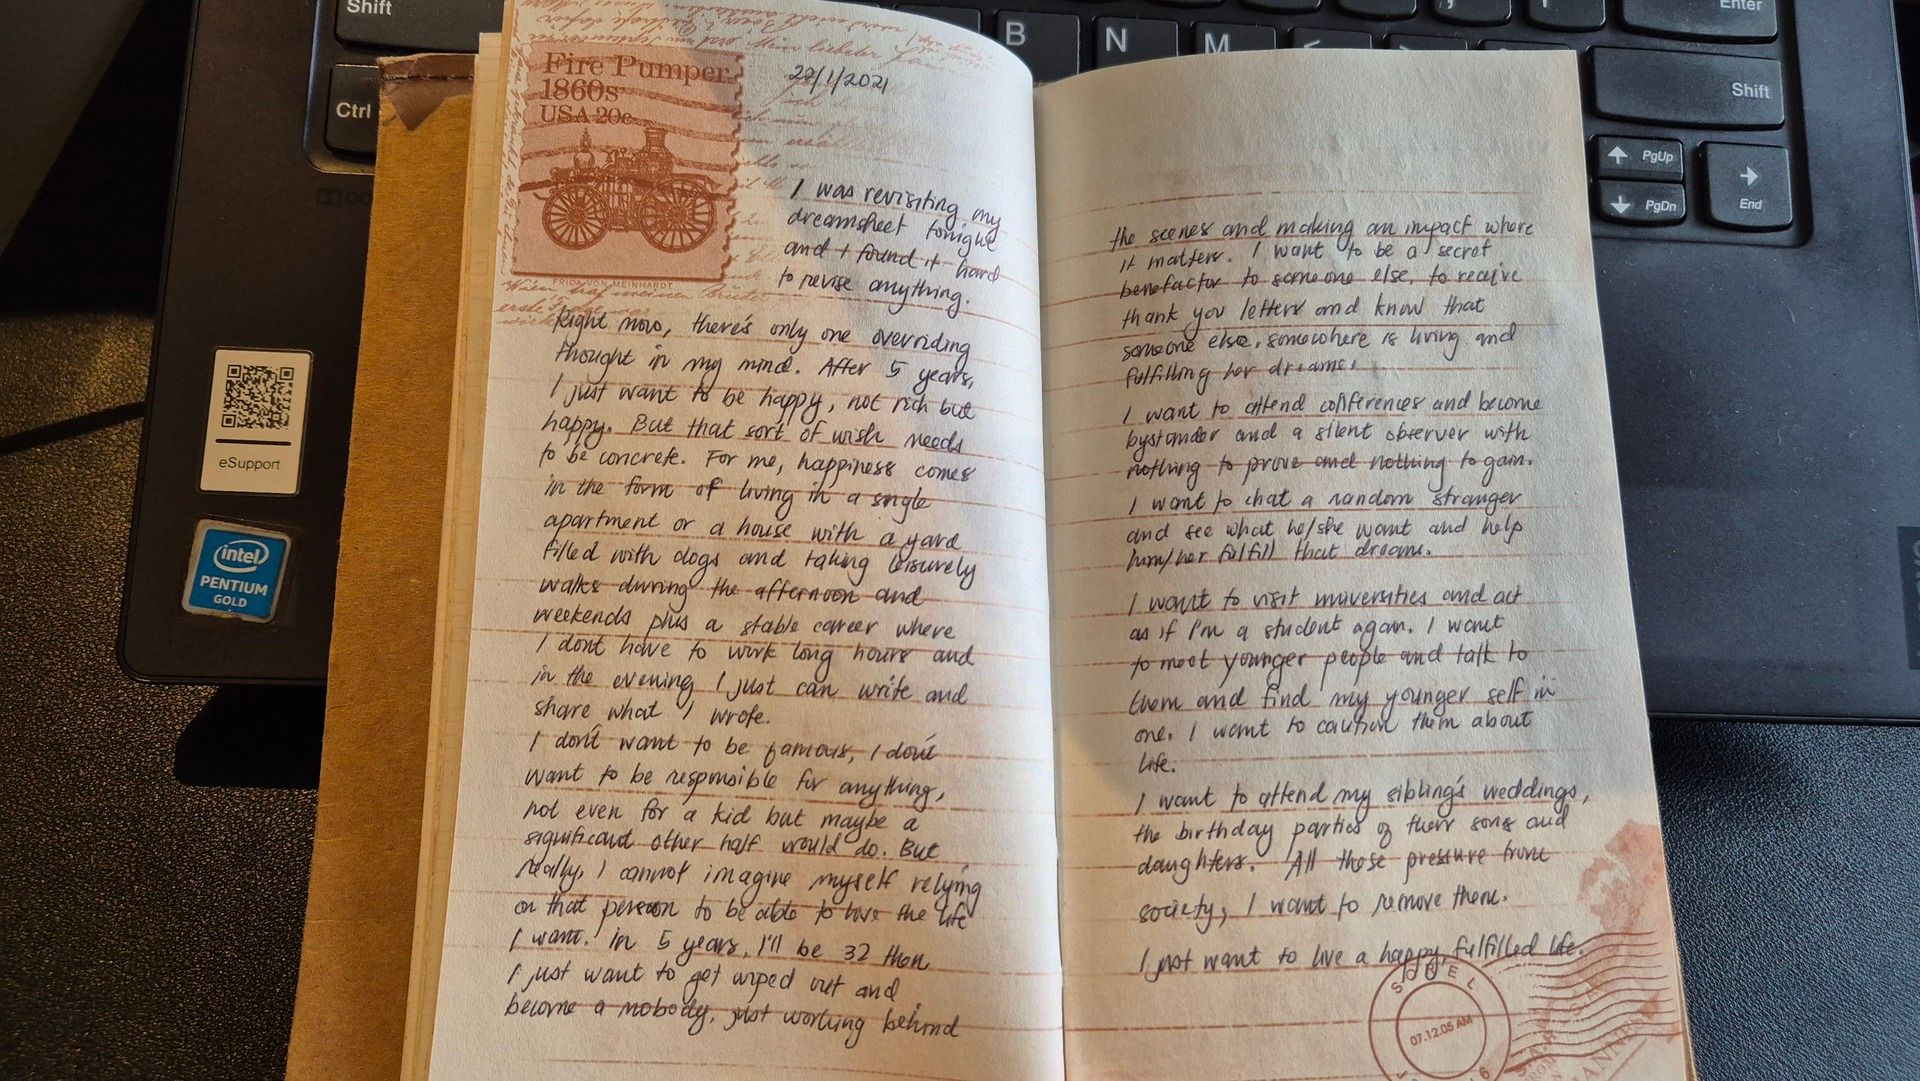 Shift
Enter
B
N
M
Ctrl
Shift
PgUp
PgDn
End
eSupport
intel
PENTIUM
GOLD
Fire Pumper
1860s
USA 20c
FRIDA VON MEINHARDT
22/1/2021
I was revisiting my
dreamsheet tonight
and I found it hard
to revise anything.
Right now, there's only one overriding
thought in my mind. After 5 years,
I just want to be happy, not rich but
happy. But that sort of wish needs
to be concrete. For me, happiness comes
in the form of living in a single
apartment or a house with a yard
filled with dogs and taking leisurely
walks during the afternoon and
weekends plus a stable career where
I dont have to work long hours and
in the evening I just can write and
share what I wrote.
I don't want to be famous, I don't
want to be responsible for anything,
not even for a kid but maybe a
significant other half would do. But
really, I cannot imagine myself relying
on that person to be able to live the life
I want. In 5 years, I'll be 32 then
I just want to get wiped out and
become a nobody, just working behind
the scenes and making an impact where
it matters. I want to be a secret
benefactor to someone else, to receive
thank you letters and know that
someone else, somewhere is living and
fulfilling her dreams.
I want to attend conferences and become
bystander and a silent observer with
nothing to prove and nothing to gain.
I want to chat a random stranger
and see what he/she want and help
him/her fulfill that dreams.
I want to visit universities and act
as if I'm a student again. I want
to meet younger people and talk to
them and find my younger self in
one. I want to caution them about
life.
I want to attend my sibling's weddings,
the birthday parties of their sons and
daughters. All those pressure from
society, I want to remove them.
I just want to live a happy, fulfilled life.
07.12.05 AM